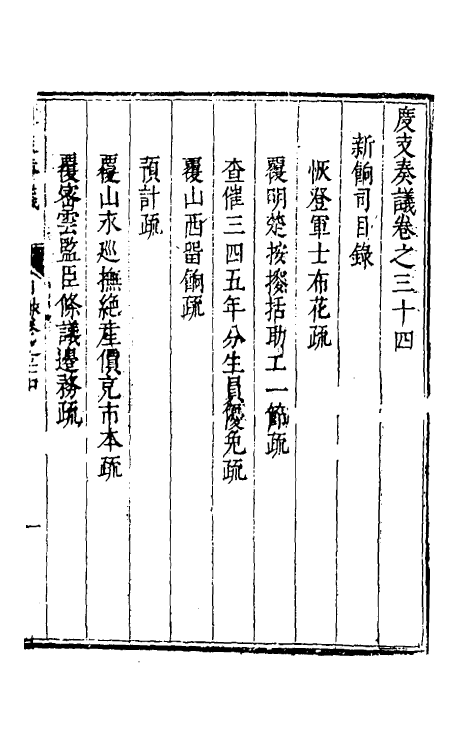 度支奏議卷之三十四
新餉司目錄
恢登軍士布花疏
覆明楚按援括助工一節疏
查催三四五年分生員優免疏
覆山西留餉疏
預計疏
覆山永巡撫絶產價克市本疏
覆密雲監臣條議邊務疏
一